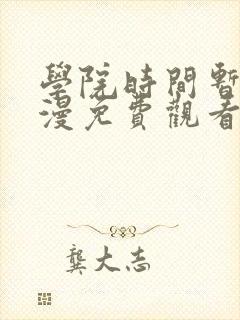 學院時間暫
漫免費觀看
龔大志